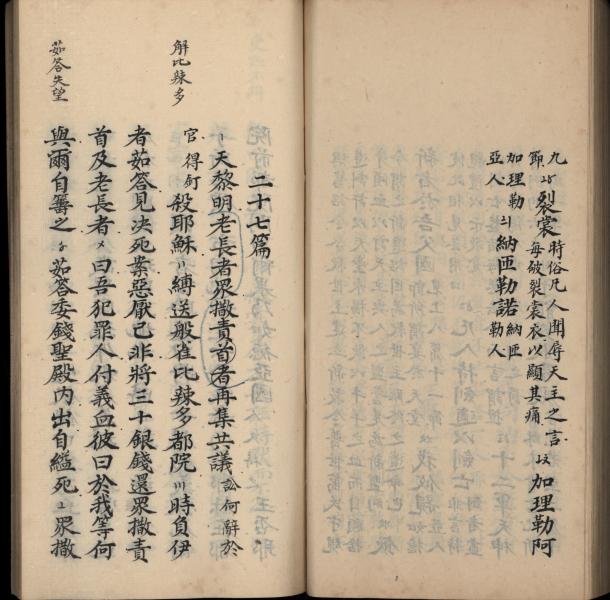 九節 裂裳 時俗凡人聞辱天主之言每破裂裳衣以顯其痛 加理勒阿
加理勒亞人 納匝勒諾 納匝勒人
二十七篇
〡天黎明老長者眾撒責首者再集共議 訟何辭於
官得釘 殺耶穌〢縛送般雀比辣多都院〣時負伊
解比辣多
者茹答見决死案惡厭己非將三十銀錢還眾撒責
首及老長者〤曰吾犯罪人付義血彼曰於我等何
與爾自籌之〥茹答委錢聖殿内出自縊死〦眾撒
茹答失望